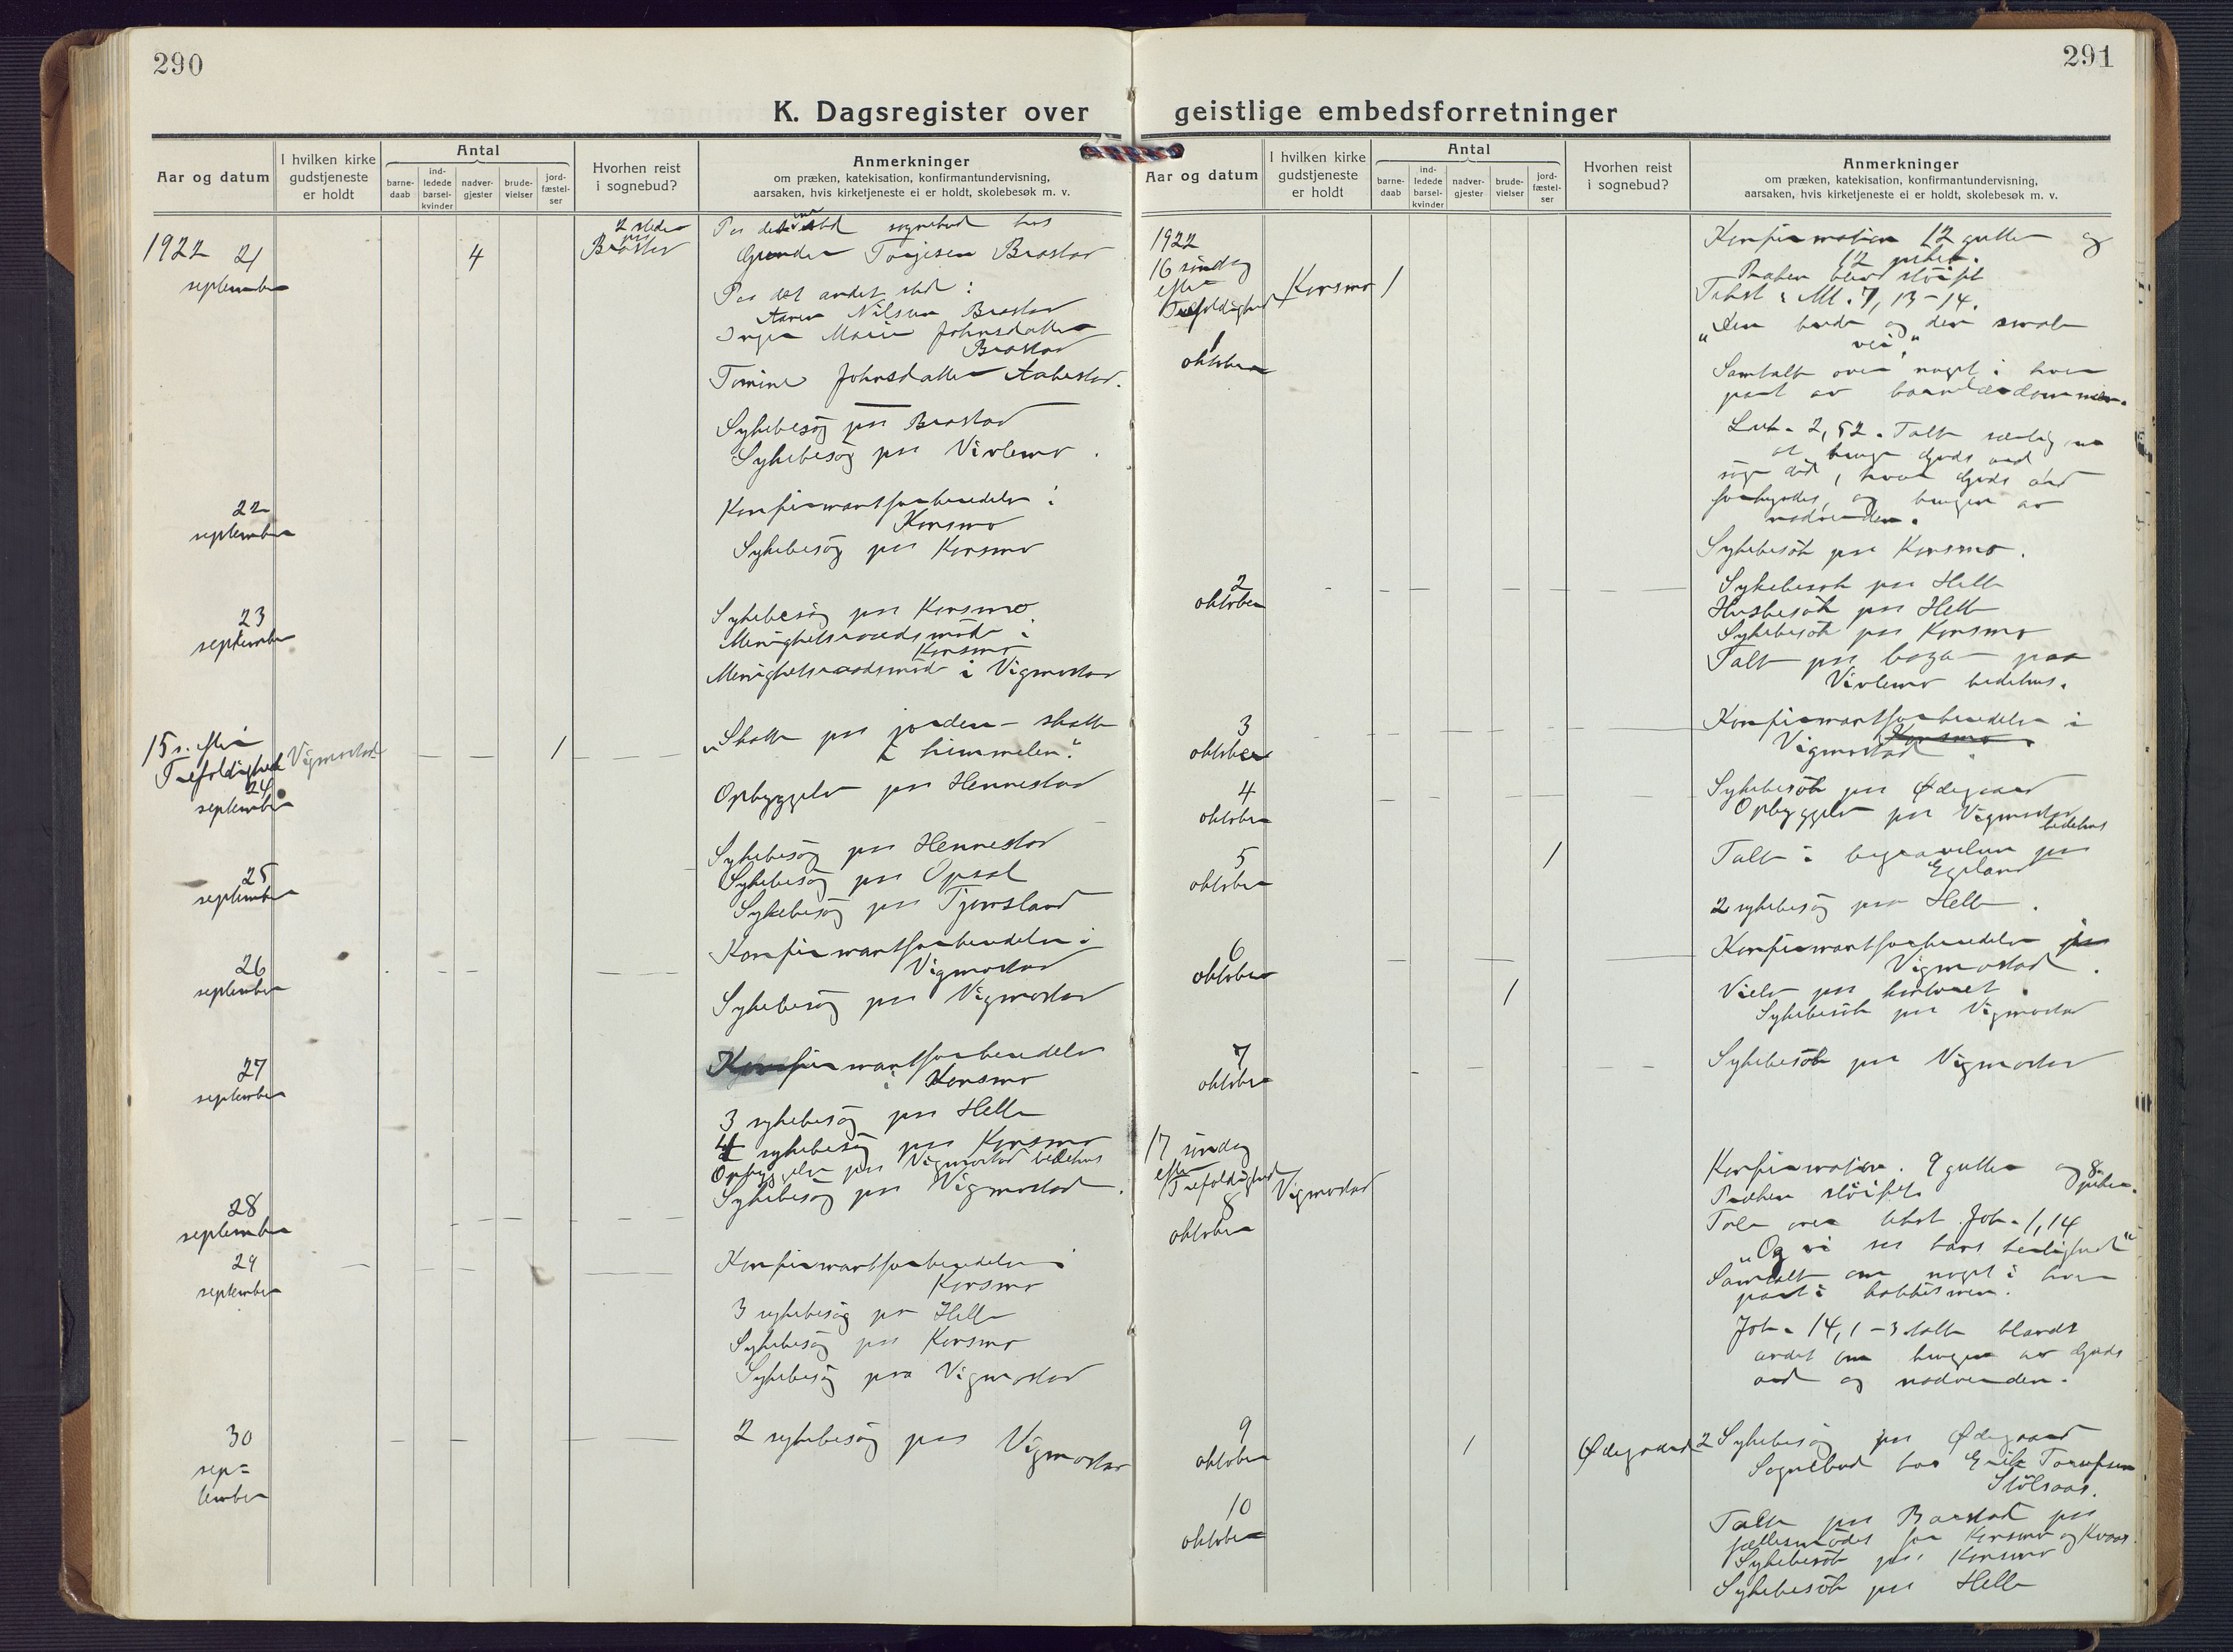 290
K. Dagsregister over
Aar og datum
I hvilken kirke
gudstjeneste
er holdt
Antal
barne-
daab
ind-
ledede
barsel-
kvinder
nadver-
gjester
brude-
vielser
jord-
fæstel-
ser
Hvorhen reist
i sognebud?
Anmerkninger
om præken, katekisation, konfirmantundervisning,
aarsaken, hvis kirketjeneste ei er holdt, skolebesøk m. v.
1922 21
september
4
2 steder
paa
Brastad
Paa det ene sted sognebud hos
Gunder Torjesen Brastad
Paa det andet sted:
Nilsen Brastad
Inger Marie Johnsdatter
Brastad
Tomine Johnsdatter Aabestad.
Sykebesøg paa Brastad
Sykebesøg paa Vivlemo.
22
september
Konfirmantforberedelse i
Konsmo
Sykebesøg paa Konsmo
23
september
Sykebesøg paa Konsmo
Menighetsraadsmøde i
Konsmo
Menighetsraadsmøde i Vigmostad
15 s. efter
Trefoldighed
24
september
Vigmostad
1
"Skatte paa jorden - skatte
i himmelen."
Opbyggelse paa Hennestad
25
september
Sykebesøg paa Hennestad
Sykebesøg paa Opsal
Sykebesøg paa Tjomsland
26
september
Konfirmantforberedelse i
Vigmostad
Sykebesøg paa Vigmostad
27
september
Konfirmantforberedelse
i Konsmo
3 sykebesøg paa Helle
4 sykebesøg paa Konsmo
Opbyggelse paa Vigmostad bedehus
Sykebesøg paa Vigmostad.
28
september
29
september
Konfirmantforberedelse i
Konsmo
3 sykebesøg paa Helle
Sykebesøg paa Konsmo
Sykebesøg paa Vigmostad
30
sep-
tember
2 sykebesøg paa Vigmostad
291
geistlige embedsforretninger
Aar og datum
I hvilken kirke
gudstjeneste
er holdt
Antal
barne-
daab
ind-
ledede
barsel-
kvinder
nadver-
gjester
brude-
vielser
jord-
fæstel-
ser
Hvorhen reist
i sognebud?
Anmerkninger
om præken, katekisation, konfirmantundervisning,
aarsaken, hvis kirketjeneste ei er holdt, skolebesøk m. v.
1922
16 søndag
efter
Trefoldighed
1
oktober
Konsmo
1
Konfirmation 12 gutter og
12 piker.
Prøken blev sløifet
Tekst: Mt. 7, 13-14.
"Den brede og den smale
vei."
Samtalte over noget i hver
part av barnelærdommen.
Luk. 2, 52. Talte særlig om
at bruge Guds ord
søge did, hvor Guds ord
forkyndes, og brugen av
nadverden.
Sykebesøk paa Konsmo.
2
oktober
Sykebesøk paa Helle
Husbesøk paa Helle
Sykebesøk paa Konsmo
Talte paa basar paa
Vivlemo bedehus.
3
oktober
Konfirmantforberedelse i
Konsmo.
Vigmostad
4
oktober
Sykebesøk paa Ødegaard
Opbyggelse paa Vigmostad
bedehus
5
oktober
1
Talte i begravelse paa
Egeland
2 sykebesøg paa Helle.
6
oktober
1
Konfirmantforberedelse paa
Vigmostad.
Vielse paa kontoret.
Sykebesøk paa Vigmostad
7
oktober
Sykebesøk paa Vigmostad
17 søndag
efter
Trefoldighed
8
oktober
Vigmostad
Konfirmation. 9 gutter og 8
piker.
Prøken sløifet.
Tale over tekst Joh. 1, 14
"Og vi saa hans herlighed"
Samtalte om noget i hver
part i katekismen.
Joh. 14, 1-3 talte blandt
andet om brugen av Guds
ord og nadverden.
9
oktober
1
Ødegaard
2 Sykebesøg paa Ødegaard
Sognebud hos Erik
Stølsaas.
10
oktober
Talte paa Barstad paa
fællesmødet for Konsmo og Kvaas.
Sykebesøk paa Konsmo
Sykebesøk paa Helle